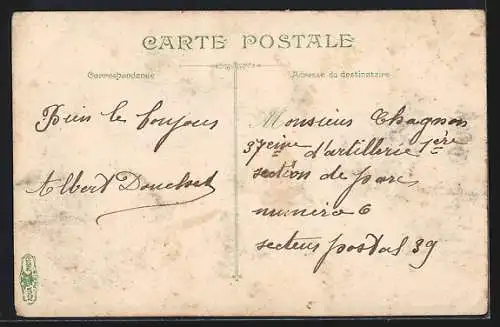 CARTE POSTALE
Correspondance
Adresse du destinataire
Bien le bonjous
Albert
Monsieur Chagnon
37eme d'artillerie 1ère
section de parc
numéro 6
secteur postal 39